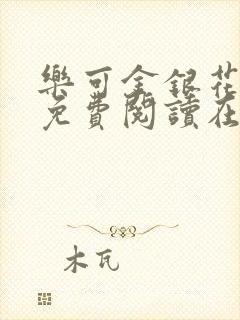 樂可金銀花
免費閱讀在
木瓦